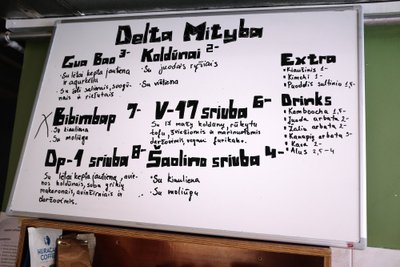 Delta Mityba
Gua Bao 3-
· Su lėtai kepta jautiena
ir agurkėliu
· Su šilt salierais, soogū-
nais ir riešutais
Koldūnai 2-
· Su juodais ryžiais
· Su vištiena
Extra
· Kiaušinis 1-
· Kimchi 1-
· Puodelis sultinio 1,5-
X Bibimbap 7-
· Su kiauliena
· Su moliūgu
V-17 sriuba 6-
· Su 17 mažų koldūnų, rūkytu
tofu, šviežiomis ir marinuotomis
daržovėmis, vegan furikake.
Drinks
· Kombucha 1,5-
· Juoda arbata 2-
· Žalia arbata 2-
· Kanapių arbata 3-
· Kava 2-
· Alus 2,5-4
Dp-1 sriuba 8-
· Su lėtai kepta jautiena, avie-
nos koldūnais, soba grikių
makaronais, avižirniais ir
daržovėmis.
Šaolino sriuba 4-
· Su kiauliena
· Su moliūgu
HURACÁN
COFFEE